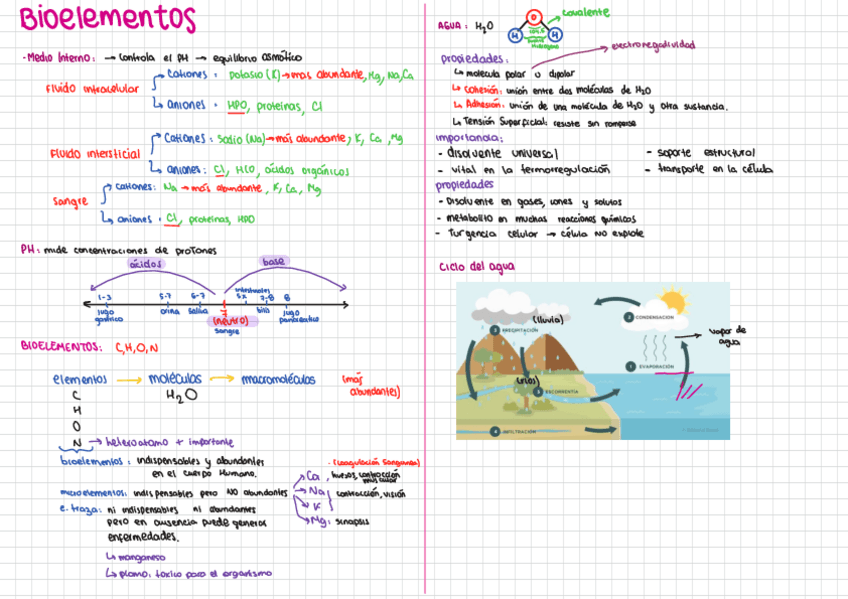 Bioelementos
- Medio Interno: → controla el pH → equilibrio osmótico
Fluido intracelular
Cationes: potasio (K) → mas abundante, Mg, Na, Ca
aniones: HPO, proteinas, Cl
Fluido intersticial
Cationes: Sodio (Na) → más abundante, K, Ca, Mg
aniones: Cl, HCO, ácidos orgánicos
Sangre
cationes: Na → más abundante, K, Ca, Mg
aniones: Cl, proteinas, HPO
PH: mide concentraciones de protones
ácidos
base
1-3
jugo gástrico
5-7
orina
6-7
saliva
7
(neutro)
sangre
intestinales
7-8
bilis
8
jugo pancreático
BIOELEMENTOS: C,H,O,N
elementos → moléculas → macromoléculas (más abundantes)
C
H₂O
H
O
N → heteroatomo + importante
bioelementos: indispensables y abundantes
en el cuerpo humano.
microelementos: indispensables pero NO abundantes
- (coagulación sanguinea)
Ca, huesos, contracción muscular
Na
contracción, visión
K
Mg: sinapsis
e. traza: ni indispensables ni abundantes
pero en ausencia puede generar
enfermedades.
↳ manganeso
↳ plomo: toxico para el organismo
AGUA: H₂O
O
H
H
covalente
104,5
electronegatividad
propiedades:
↳ molécula polar o dipolar
↳ Cohesión: unión entre dos moléculas de H₂O
↳ Adhesión: unión de una molécula de H₂O y otra sustancia.
↳ Tensión Superficial: resiste sin romperse
importancia:
- disolvente universal
- soporte estructural
- vital en la termorregulación
- transporte en la célula
propiedades
- Disolvente en gases, iones y solutos
- metabolito en muchas reacciones químicas
- Turgencia celular → célula NO explote
Ciclo del agua
(lluvia)
3 PRECIPITACIÓN
2 CONDENSACIÓN
vapor de agua
1 EVAPORACIÓN
(rios)
5 ESCORRENTÍA
4 INFILTRACIÓN